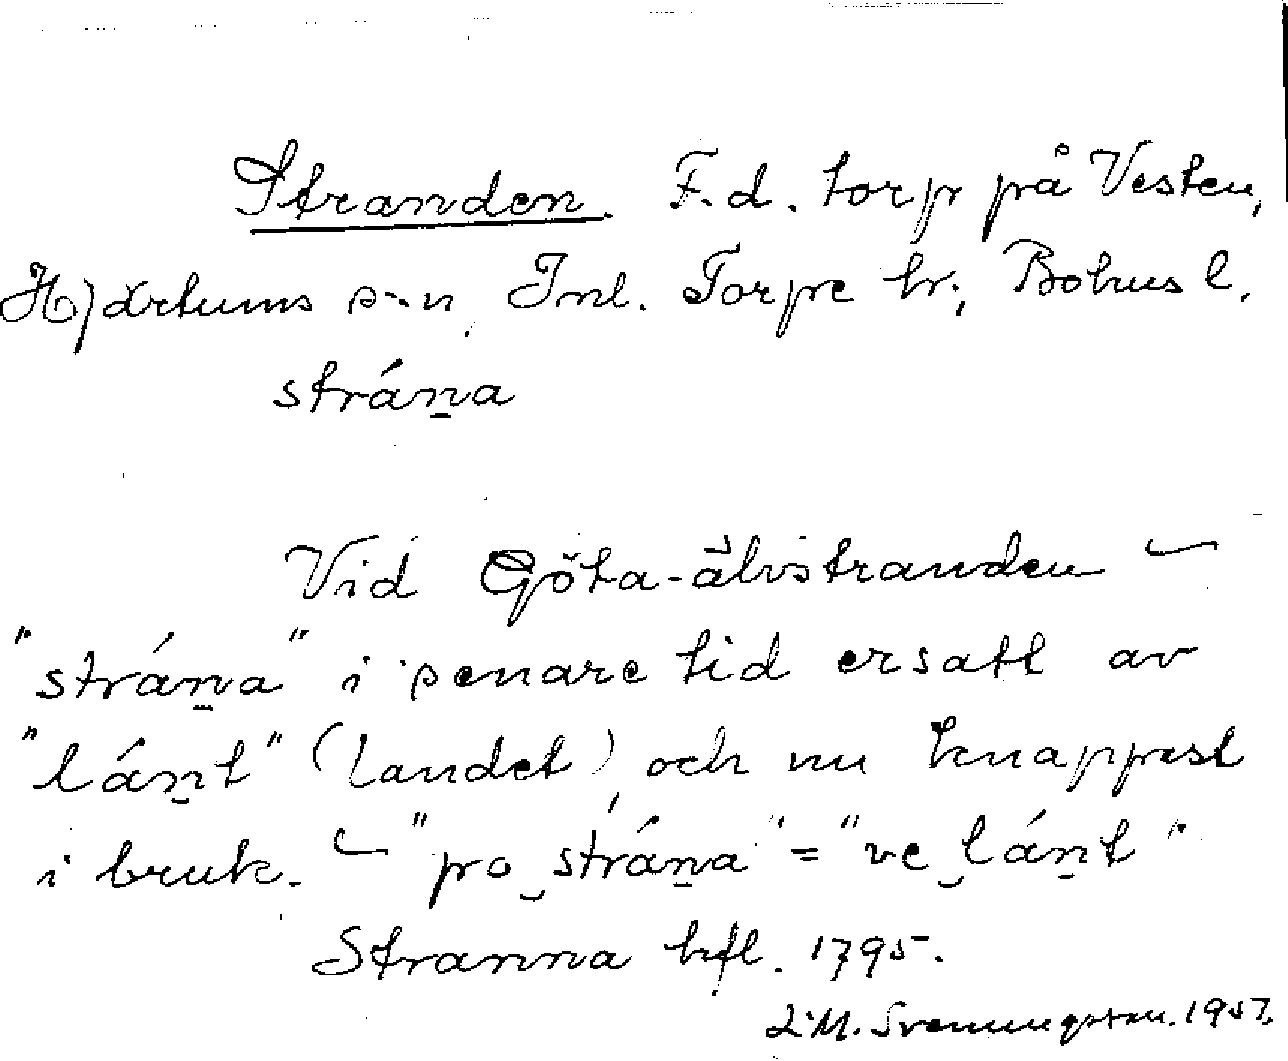 Stranden. F.d. torp på Vesten,
Hjärtums s-n, Inl. Torpe hr., Bohusl.
strán̲a
Vid Göta-älvstranden –
"strán̲a" i senare tid ersatt av
"lán̲t" (landet), och nu knappast
i bruk. – "po‿strán̲a" = "ve‿lán̲t"
Stranna hfl. 1795.
L.M. Svenungsson. 1957.